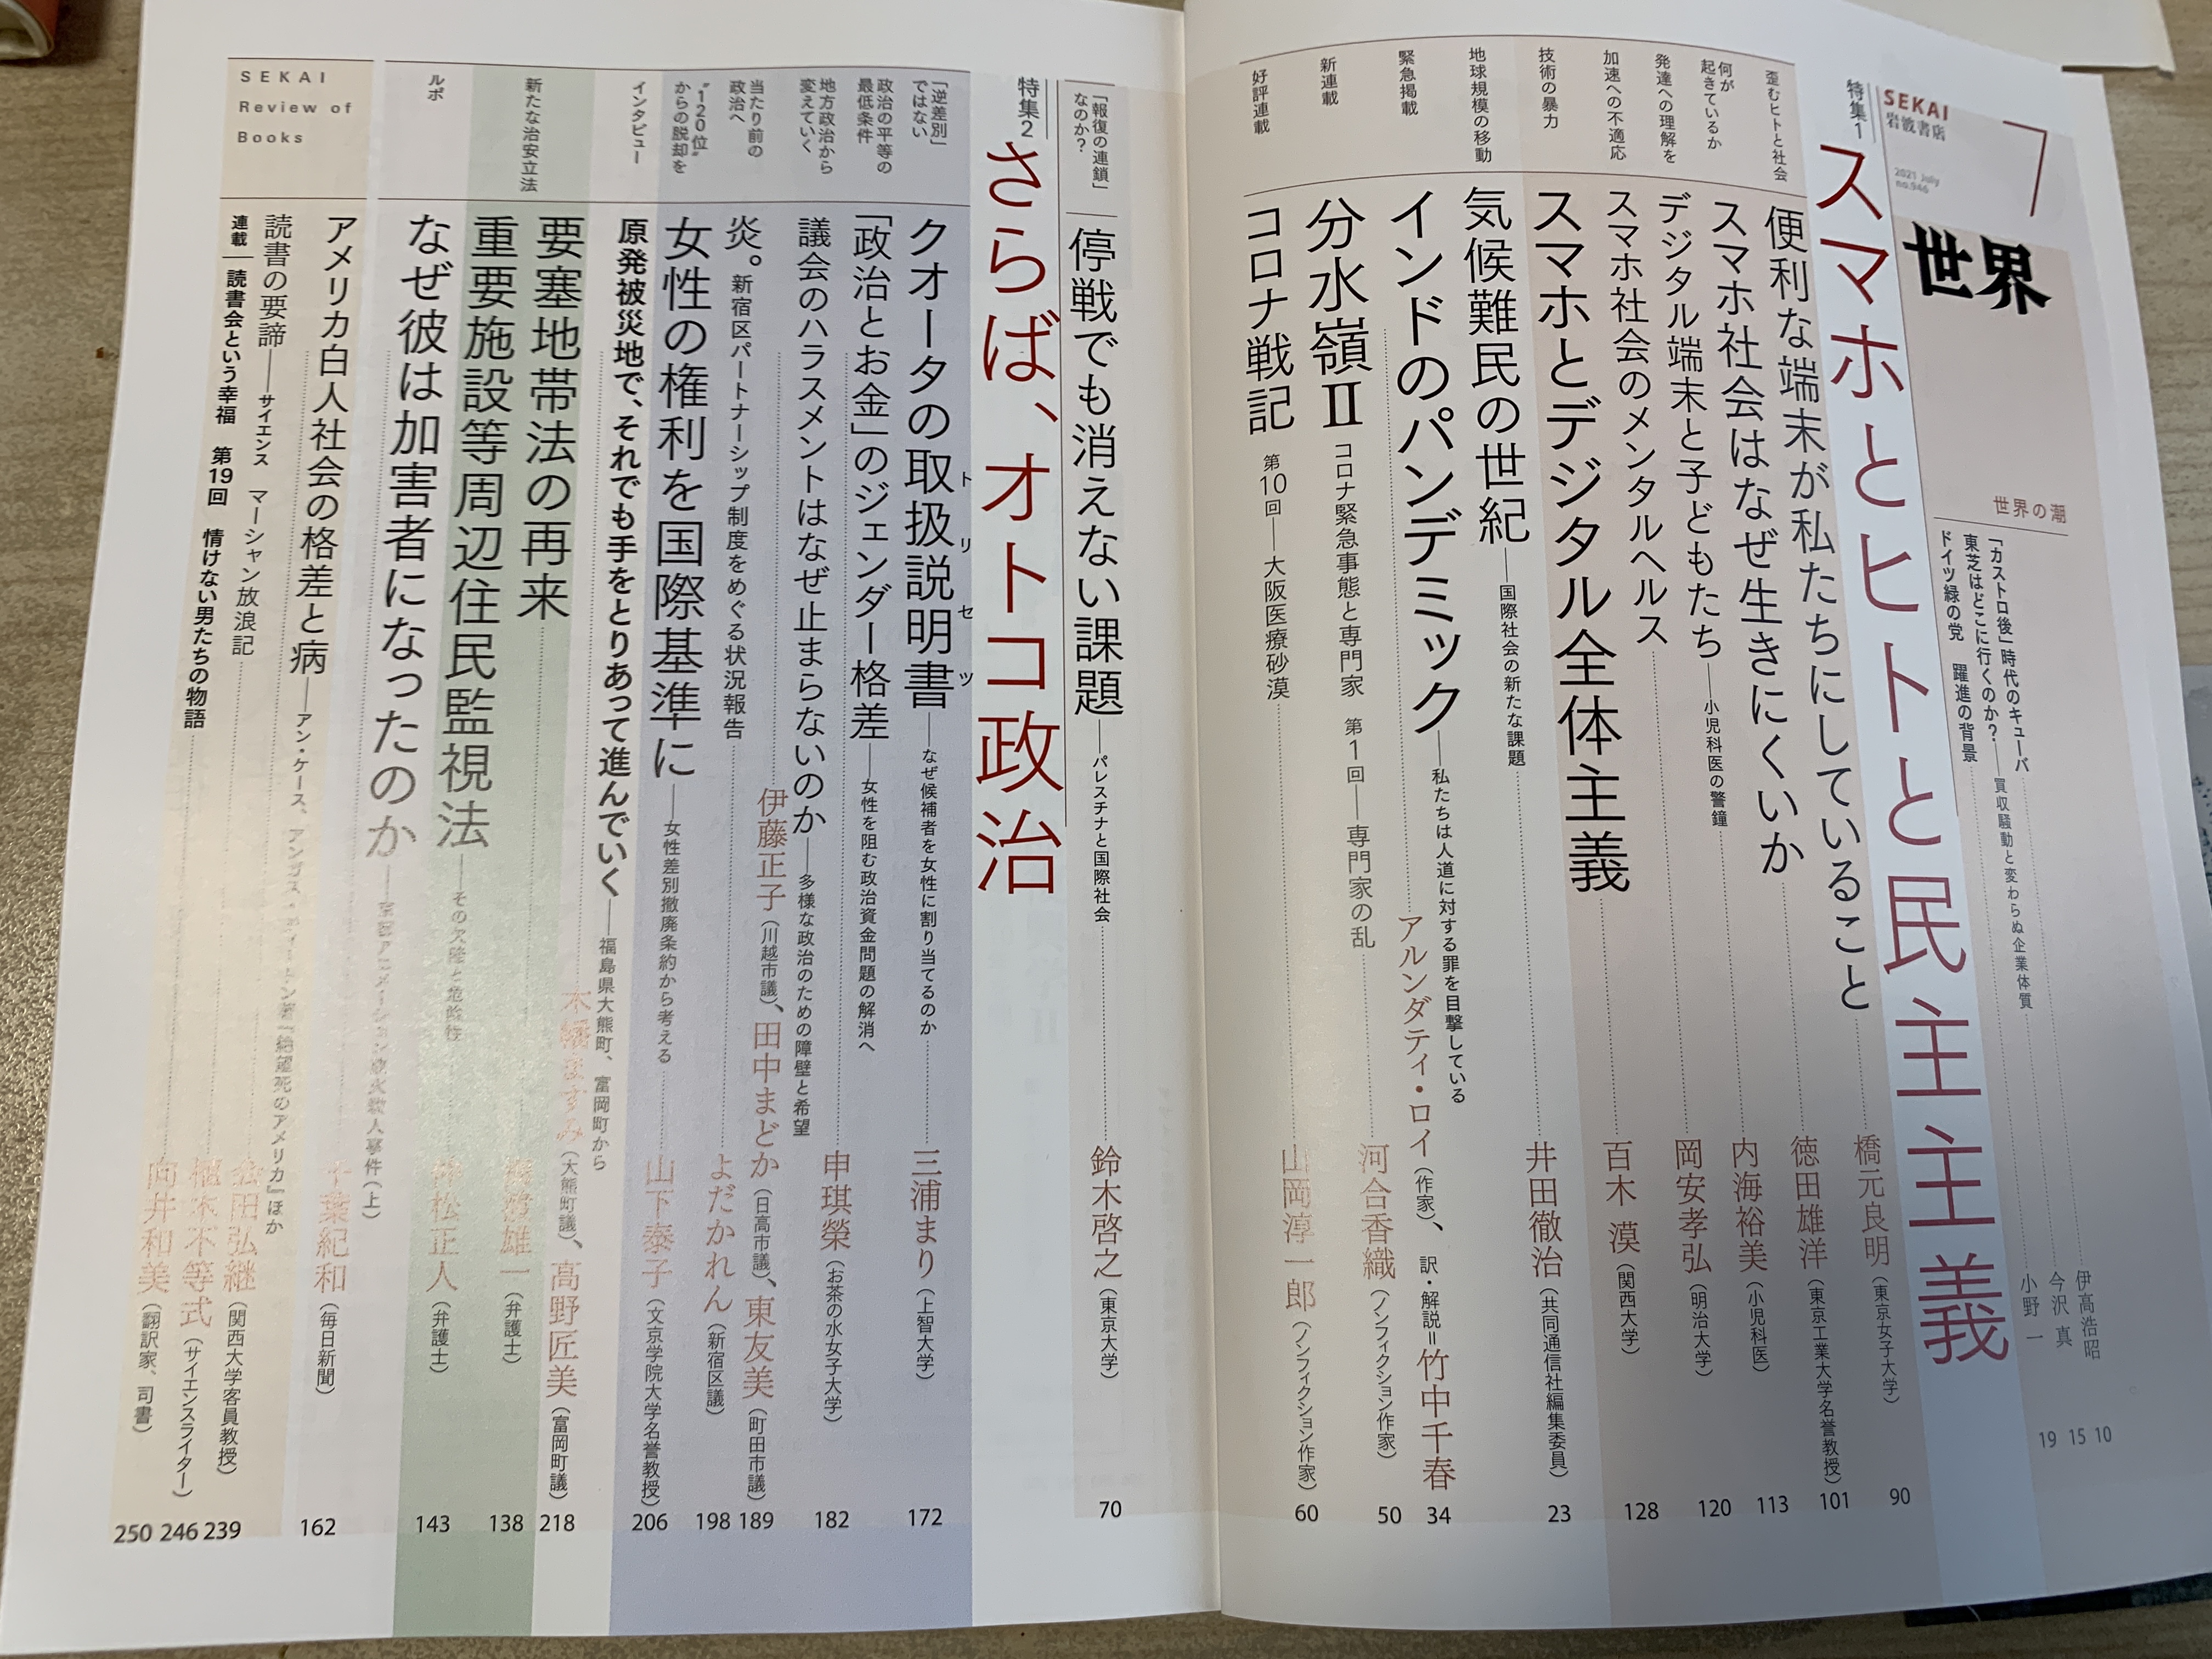 SEKAI
岩波書店
7
2021 July
no.946
世界
世界の潮
「カストロ後」時代のキューバ
伊高浩昭
10
東芝はどこに行くのか?――買収騒動と変わらぬ企業体質
今沢 真
15
ドイツ緑の党 躍進の背景
小野 一
19
特集1
スマホとヒトと民主主義
歪むヒトと社会
便利な端末が私たちにしていること
橋元良明(東京女子大学)
90
何が
起きているか
スマホ社会はなぜ生きにくいか
徳田雄洋(東京工業大学名誉教授)
101
発達への理解を
デジタル端末と子どもたち――小児科医の警鐘
内海裕美(小児科医)
113
加速への不適応
スマホ社会のメンタルヘルス
岡安孝弘(明治大学)
120
技術の暴力
スマホとデジタル全体主義
百木 漠(関西大学)
128
地球規模の移動
気候難民の世紀――国際社会の新たな課題
井田徹治(共同通信社編集委員)
23
緊急掲載
インドのパンデミック――私たちは人道に対する罪を目撃している
アルンダティ・ロイ(作家)、訳・解説=竹中千春
34
新連載
分水嶺Ⅱ コロナ緊急事態と専門家 第1回――専門家の乱
河合香織(ノンフィクション作家)
50
好評連載
コロナ戦記 第10回――大阪医療砂漠
山岡淳一郎(ノンフィクション作家)
60
「報復の連鎖」
なのか?
停戦でも消えない課題――パレスチナと国際社会
鈴木啓之(東京大学)
70
特集2
さらば、オトコ政治
「逆差別」
ではない
クオータの取扱説明書――なぜ候補者を女性に割り当てるのか
トリセツ
三浦まり(上智大学)
172
政治の平等の
最低条件
「政治とお金」のジェンダー格差――女性を阻む政治資金問題の解消へ
申琪榮(お茶の水女子大学)
182
地方政治から
変えていく
議会のハラスメントはなぜ止まらないのか――多様な政治のための障壁と希望
伊藤正子(川越市議)、田中まどか(日高市議)、東友美(町田市議)
189
当たり前の
政治へ
炎。新宿区パートナーシップ制度をめぐる状況報告
よだかれん(新宿区議)
198
“120位”
からの脱却を
女性の権利を国際基準に――女性差別撤廃条約から考える
山下泰子(文京学院大学名誉教授)
206
インタビュー
原発被災地で、それでも手をとりあって進んでいく――福島県大熊町、富岡町から
木幡ますみ(大熊町議)、高野匠美(富岡町議)
218
新たな治安立法
要塞地帯法の再来
雄一(弁護士)
138
重要施設等周辺住民監視法――その欠陥と危険性
仲松正人(弁護士)
143
ルポ
なぜ彼は加害者になったのか――京都アニメーション放火殺人事件(上)
千葉紀和(毎日新聞)
162
SEKAI
Review of
Books
アメリカ白人社会の格差と病――アン・ケース、アンガス・ディートン著『絶望死のアメリカ』ほか
会田弘継(関西大学客員教授)
239
読書の要諦――サイエンス マーシャン放浪記
植木不等式(サイエンスライター)
246
連載――読書会という幸福 第19回 情けない男たちの物語
向井和美(翻訳家、司書)
250